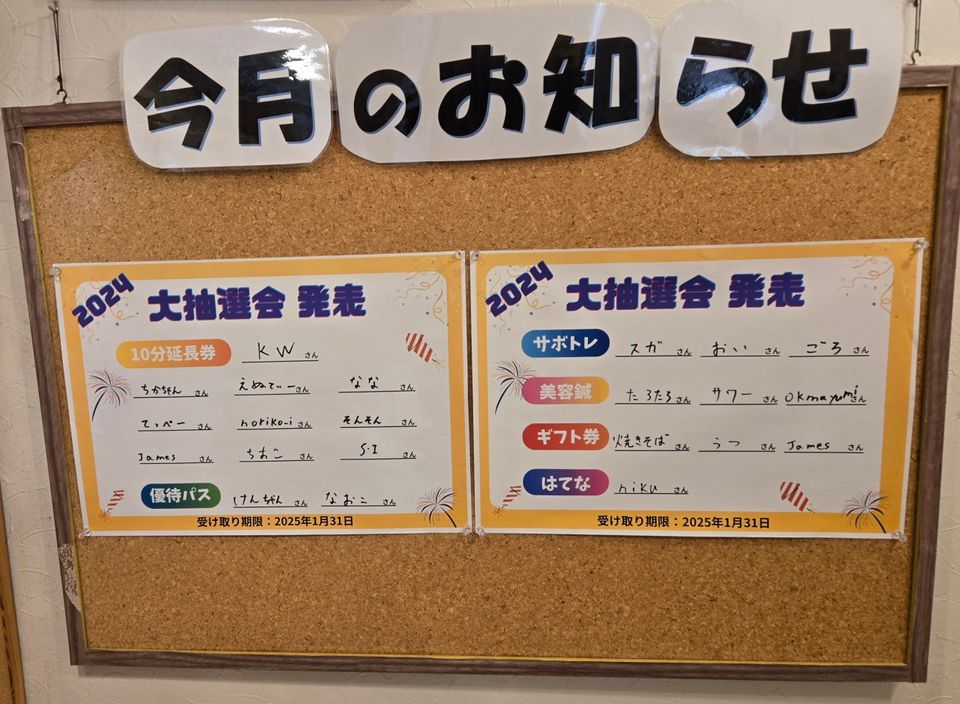 今月のお知らせ
2024
大抽選会 発表
10分延長券 KWさん
ちかちゃんさん えぬてぃーさん ななさん
てっぺーさん noriko-iさん そんそんさん
Jamesさん ちあこさん S・Iさん
優待パス けんぢゃんさん なおこさん
受け取り期限：2025年1月31日
2024
大抽選会 発表
サポトレ スガさん おいさん ごろさん
美容鍼 たろたろさん サワーさん okmayumiさん
ギフト券 焼きそばさん うっさん Jamesさん
はてな nikuさん
受け取り期限：2025年1月31日